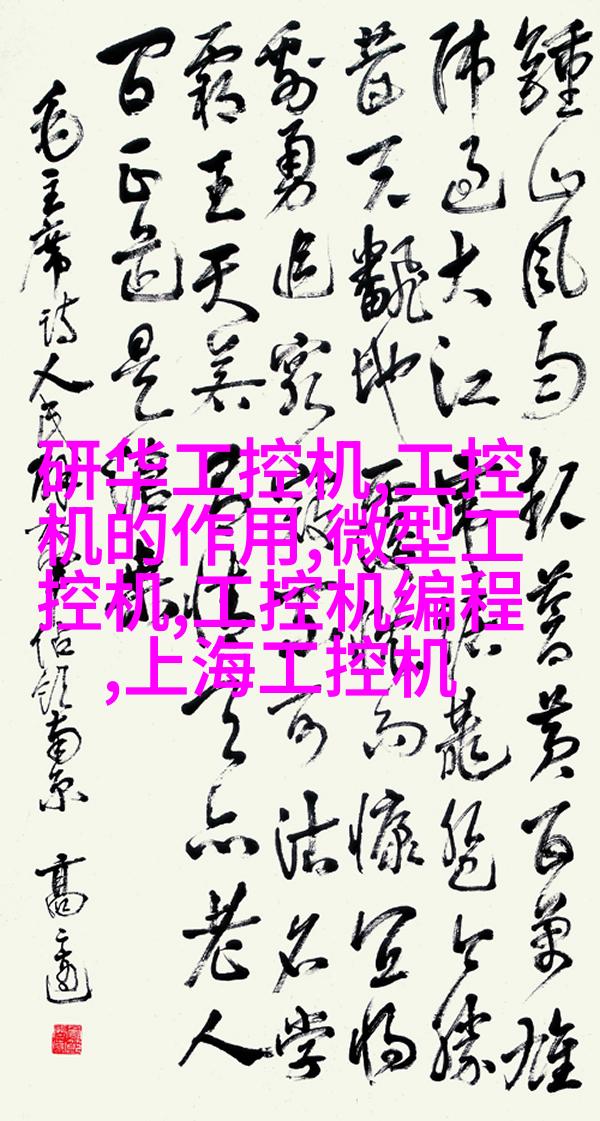 鍾山風雨起蒼黄百萬雄
师过大江虎踞龍盤今勝
昔天翻地覆慨而慷宜将
剩勇追窮寇不可沽名学
霸王天若有情天亦老人
间正道是滄桑
毛主席诗人民解放军占领南京 高
研华工控机,工控
机的作用,微型工
控机,工控机编程
,上海工控机